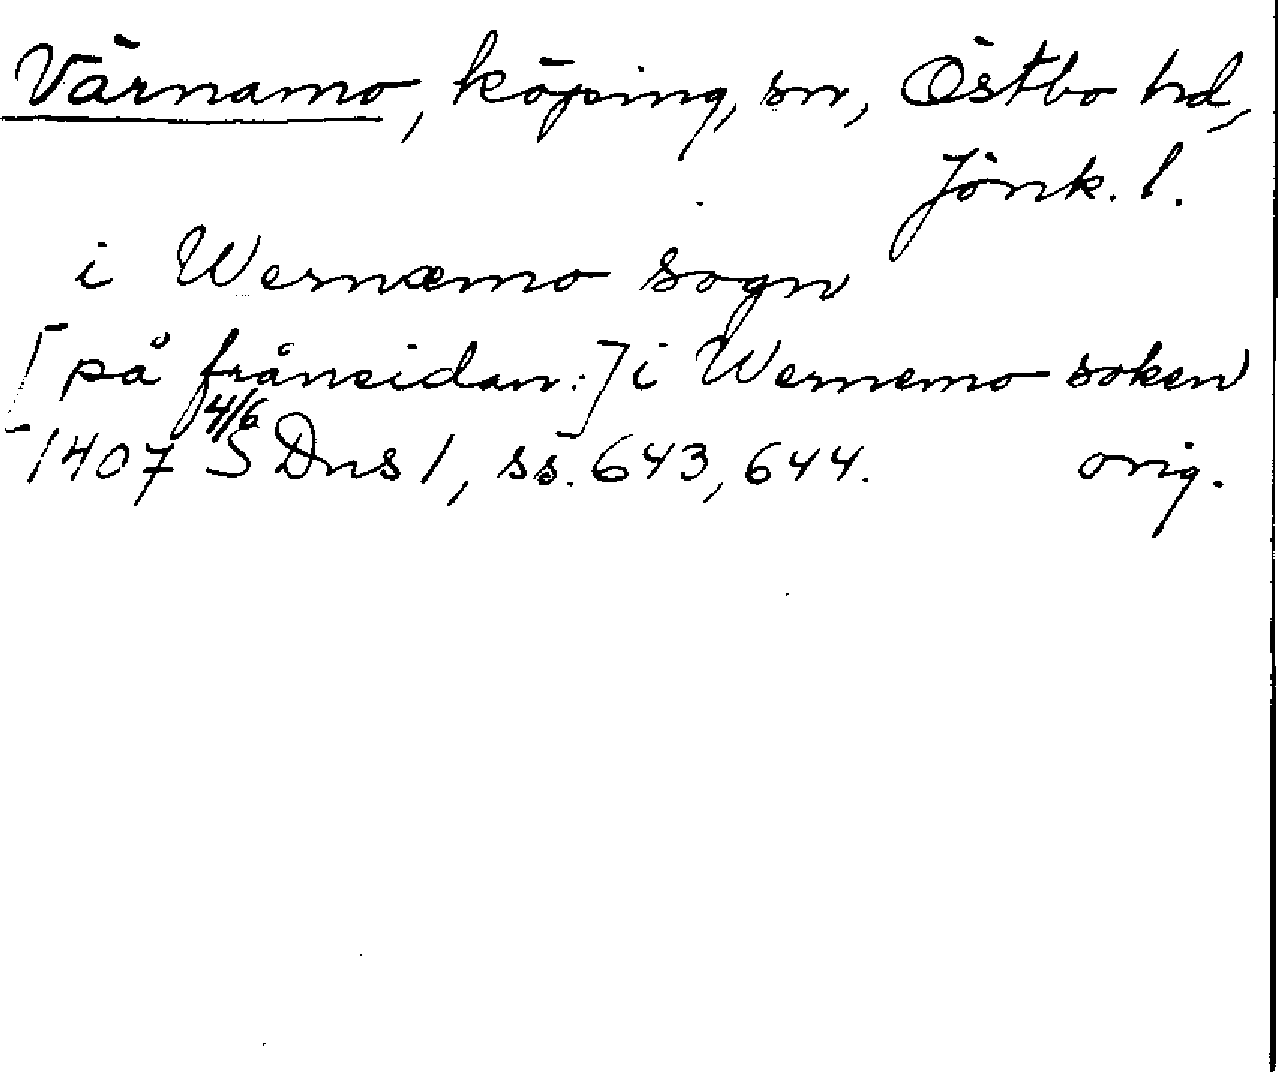 Värnamo, köping, sn, Östbo hd,
Jönk. l.
i Wernæmo sogn
[på frånsidan:] i Wernemo soken
1407 4/6 SDns 1, ss. 643, 644. orig.